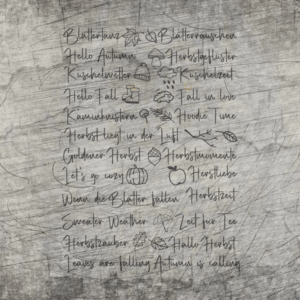 Blättertanz Blätterrauschen
Hello Autumn Herbstgeflüster
Kuschelwetter Kuschelzeit
Hello Fall Fall in love
Kaminknistern Hoodie Time
Herbst liegt in der Luft
Goldener Herbst Herbstmomente
Let's go cozy Herbstliebe
Wenn die Blätter fallen Herbstzeit
Sweater Weather Zeit für Tee
Herbstzauber Hallo Herbst
Leaves are falling Autumn is calling